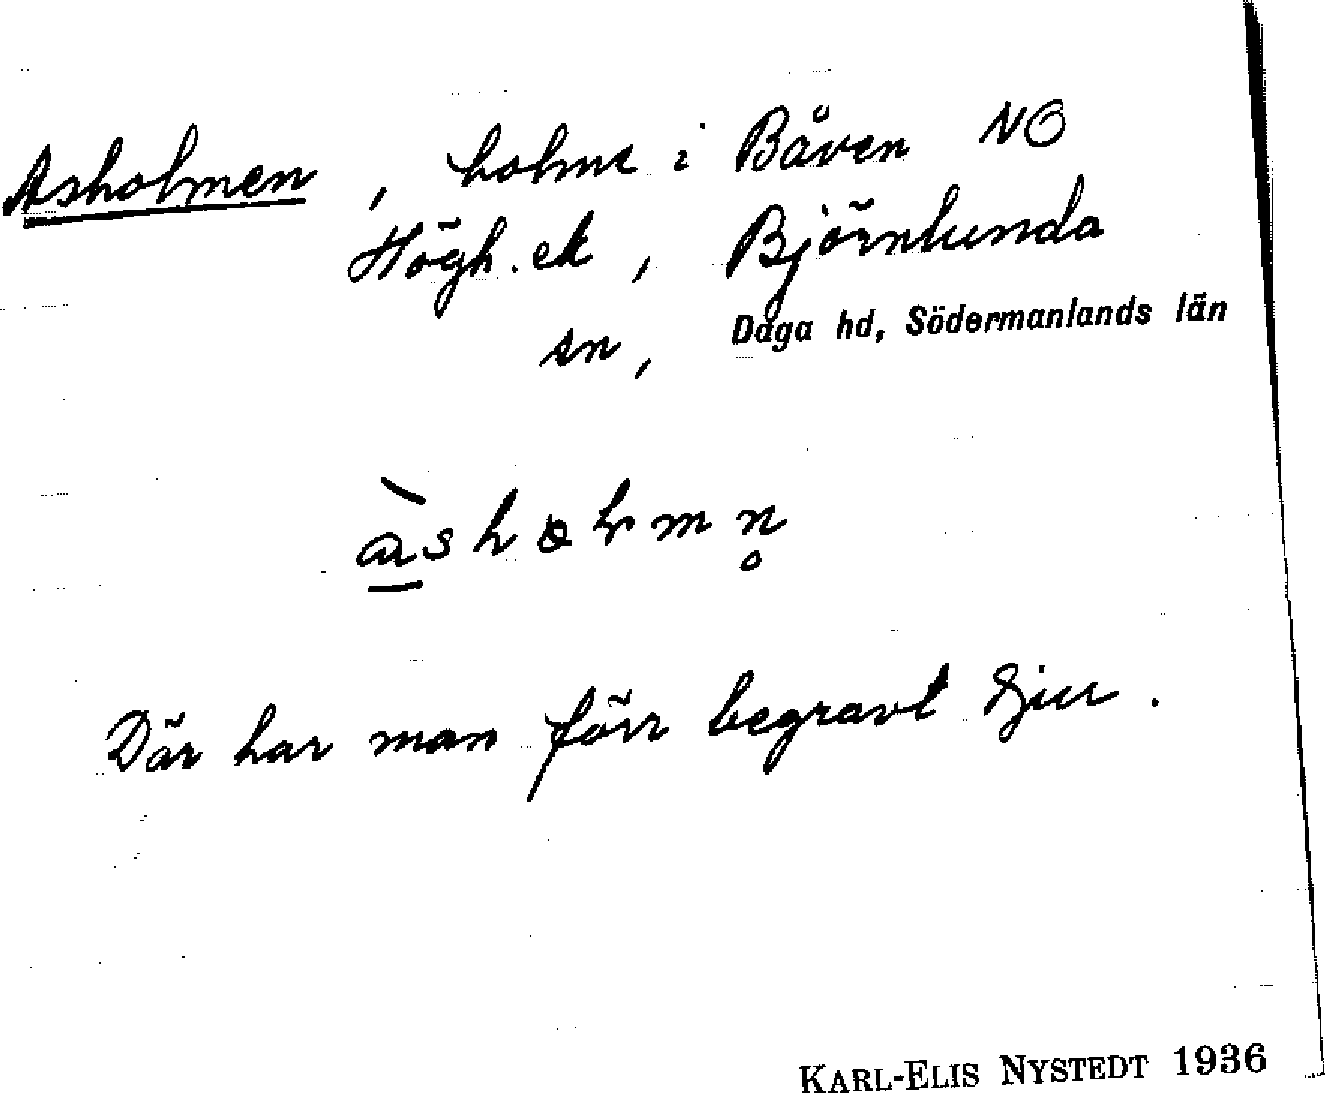 Asholmen, holme i Båven NO
Högh. ek, Björnlunda
sn, Daga hd, Södermanlands län
Där har man förr begravt djur.
KARL-ELIS NYSTEDT 1936